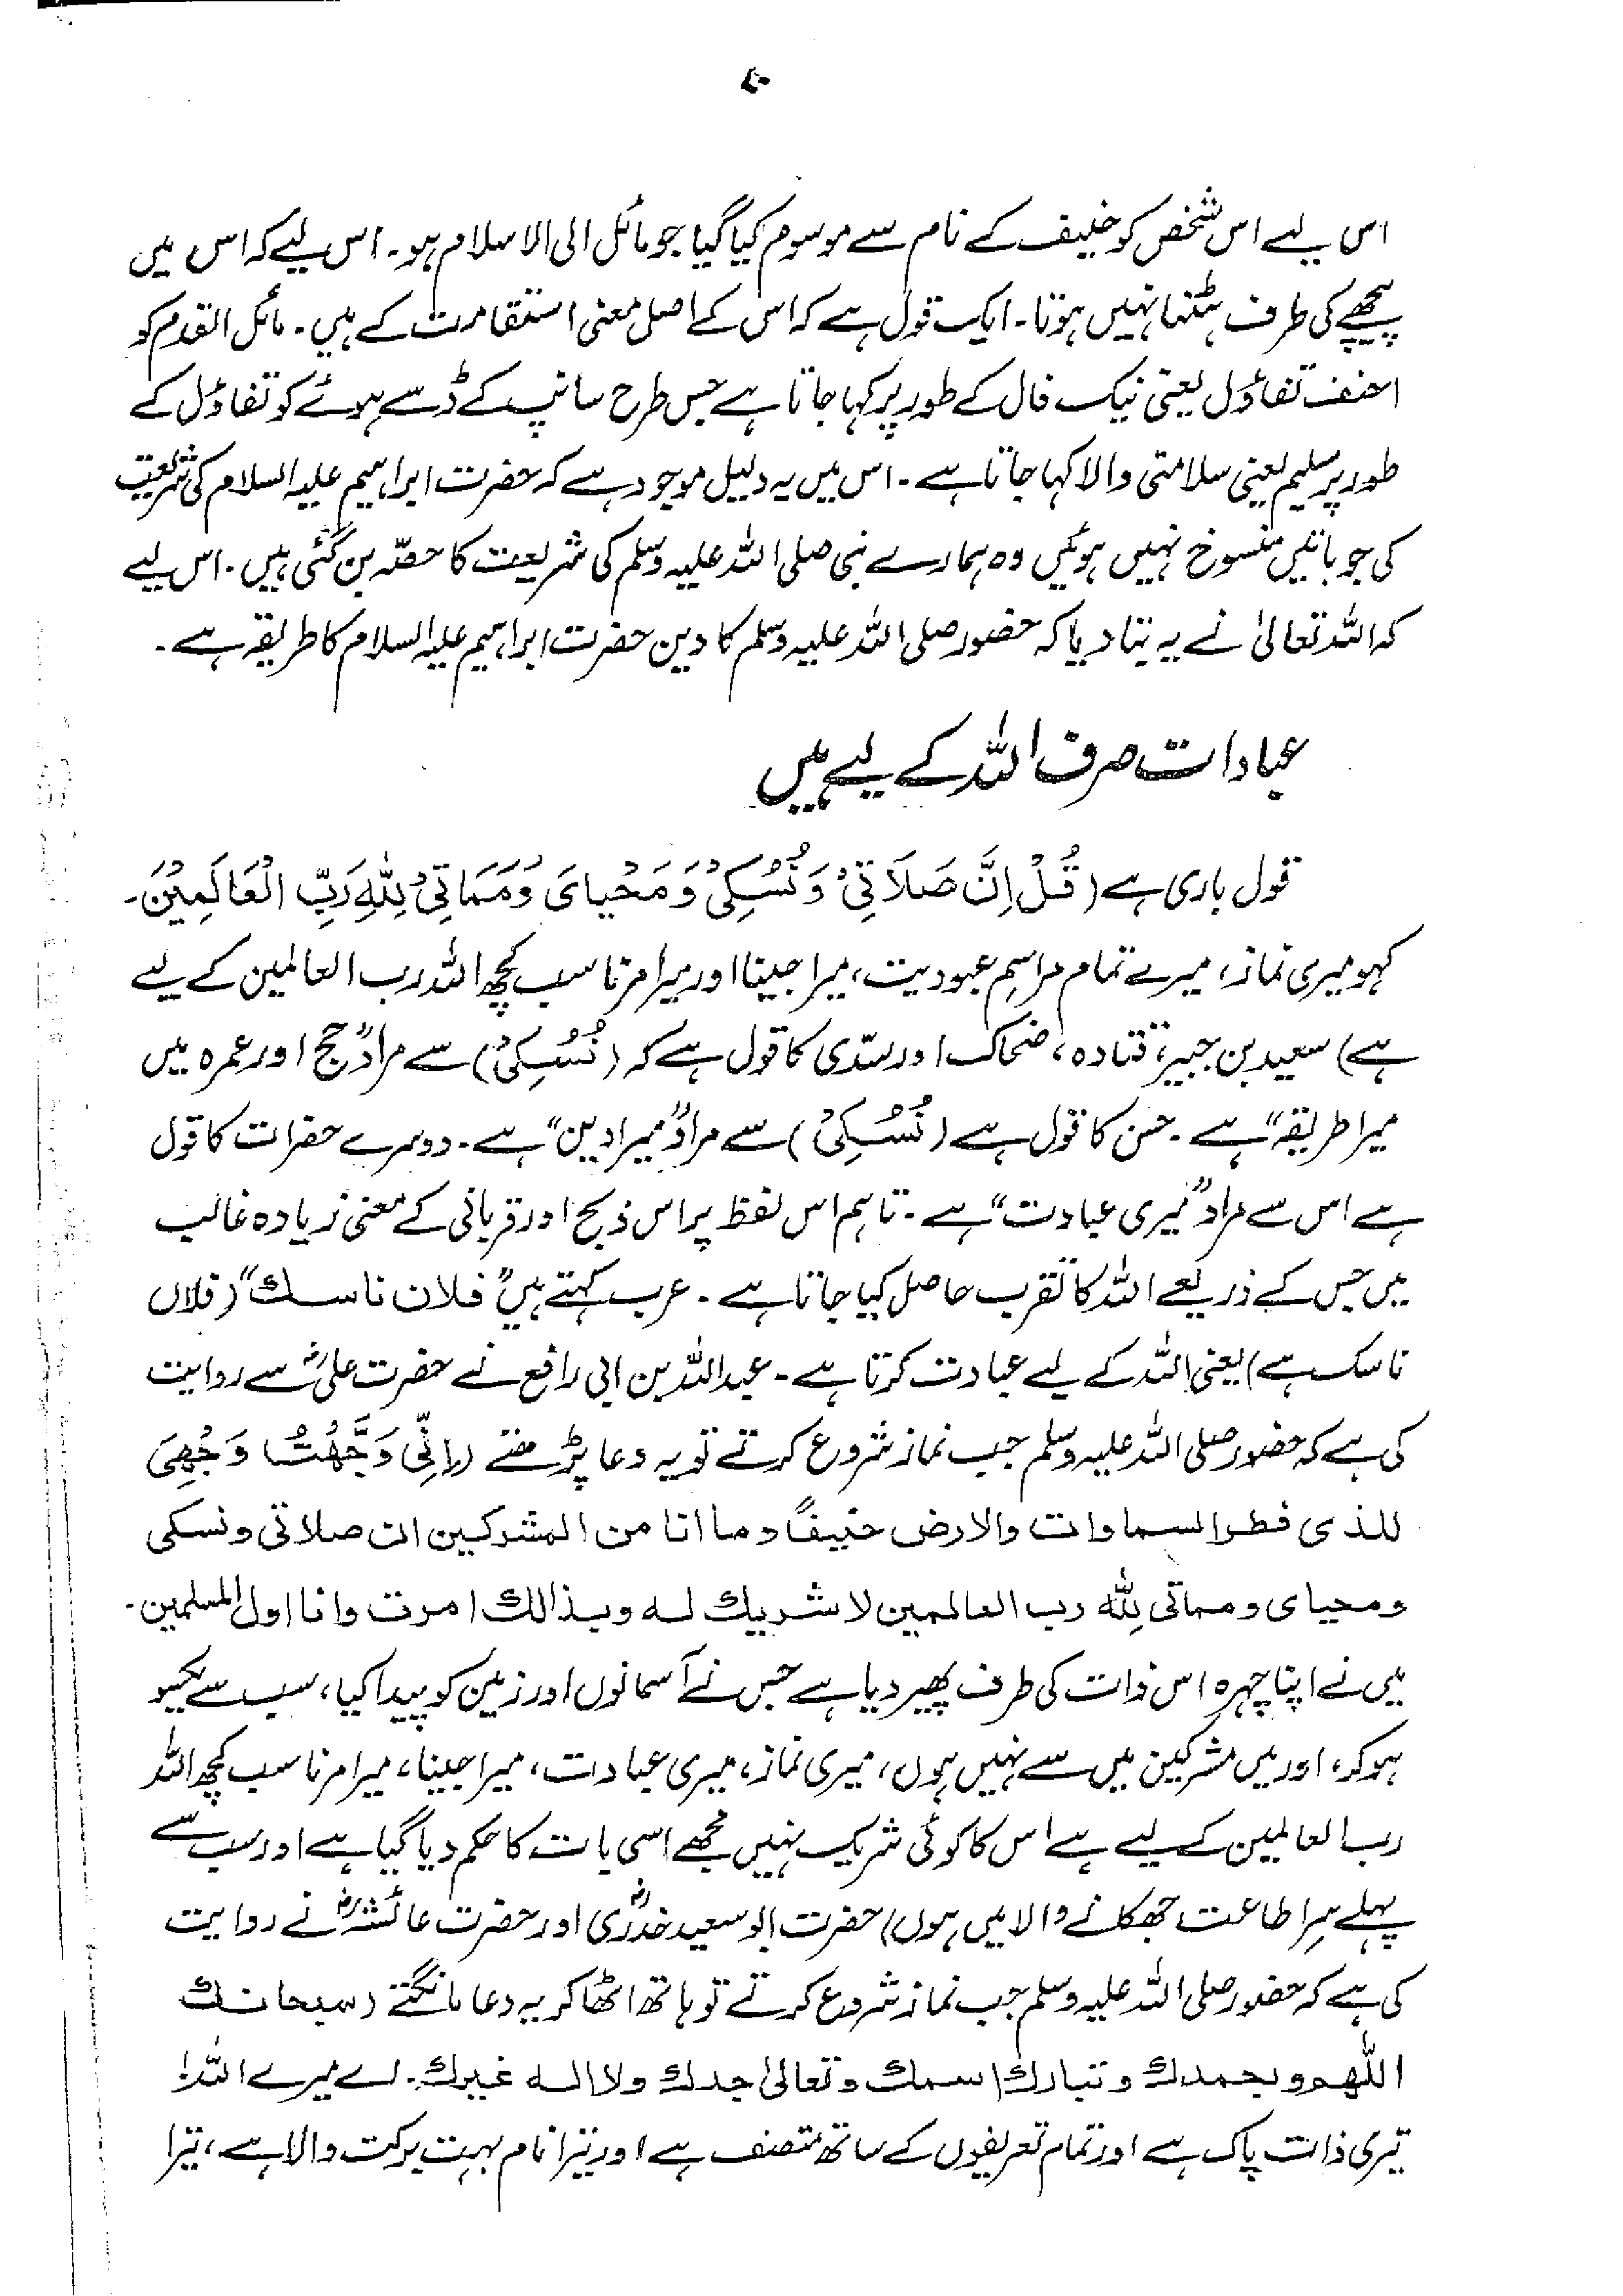 ۷۰
اس لیے اس شخص کو حنیف کے نام سے موسوم کیا گیا جو مائل الی الاسلام ہو۔ اس لیے کہ اس میں
پیچھے کی طرف ہٹنا نہیں ہوتا۔ ایک قول ہے کہ اس کے اصل معنی استقامت کے ہیں۔ مائل القدم کو
احنف تفاؤل یعنی نیک فال کے طور پر کہا جاتا ہے جس طرح سانپ کے ڈسے ہوئے کو تفاؤل کے
طور پر سلیم یعنی سلامتی والا کہا جاتا ہے۔ اس میں یہ دلیل موجود ہے کہ حضرت ابراہیم علیہ السلام کی شریعت
کی جو باتیں منسوخ نہیں ہوئیں وہ ہمارے نبی صلی اللہ علیہ وسلم کی شریعت کا حصّہ بن گئی ہیں۔ اس لیے
کہ اللہ تعالیٰ نے یہ بتا دیا کہ حضور صلی اللہ علیہ وسلم کا دین حضرت ابراہیم علیہ السلام کا طریقہ ہے۔
عبادات صرف اللہ کے لیے ہیں
قول باری ہے (قُلْ اِنَّ صَلَاتِیْ وَنُسُکِیْ وَمَحْیایَ وَمَمَاتِیْ لِلّٰهِ رَبِّ الْعَالَمِیْنَ۔
کہو میری نماز، میرے تمام مراسمِ عبودیت، میرا جینا اور میرا مرنا سب کچھ اللہ رب العالمین کے لیے
ہے) سعید بن جبیر، قتادہ، ضحاک اور سدّی کا قول ہے کہ (نُسُکِیْ) سے مراد "حج اور عمرہ میں
میرا طریقہ" ہے۔ حسن کا قول ہے (نُسُکِیْ) سے مراد "میرا دین" ہے۔ دوسرے حضرات کا قول
ہے اس سے مراد "میری عبادت" ہے۔ تاہم اس لفظ پر اس ذبح اور قربانی کے معنی زیادہ غالب
ہیں جس کے ذریعے اللہ کا تقرب حاصل کیا جاتا ہے۔ عرب کہتے ہیں "فلان ناسك" (فلاں
ناسک ہے) یعنی اللہ کے لیے عبادت کرتا ہے۔ عبداللہ بن ابی رافع نے حضرت علیؓ سے روایت
کی ہے کہ حضور صلی اللہ علیہ وسلم جب نماز شروع کرتے تو یہ دعا پڑھتے (اِنِّی وَجَّهْتُ وَجْهِیَ
للذی فطر السماوات والارض حنیفًا وما انا من المشرکین ان صلاتی ونسکی
ومحیای ومماتی لِلّٰه رب العالمین لا شریك له وبذالك امرت وانا اول المسلمین۔
میں نے اپنا چہرہ اس ذات کی طرف پھیر دیا ہے جس نے آسمانوں اور زمین کو پیدا کیا، سب سے یکسو
ہو کر، اور میں مشرکین میں سے نہیں ہوں، میری نماز، میری عبادت، میرا جینا، میرا مرنا سب کچھ اللہ
رب العالمین کے لیے ہے اس کا کوئی شریک نہیں مجھے اسی بات کا حکم دیا گیا ہے اور سب سے
پہلے سرِ اطاعت جھکانے والا میں ہوں) حضرت ابو سعید خدریؓ اور حضرت عائشہؓ نے روایت
کی ہے کہ حضور صلی اللہ علیہ وسلم جب نماز شروع کرتے تو ہاتھ اٹھا کر یہ دعا مانگتے (سبحانك
اللّٰهم وبحمدك وتبارك اسمك وتعالیٰ جدك ولا اله غیرك۔ اے میرے اللہ!
تیری ذات پاک ہے اور تمام تعریفوں کے ساتھ متصف ہے اور تیرا نام بہت برکت والا ہے، تیرا